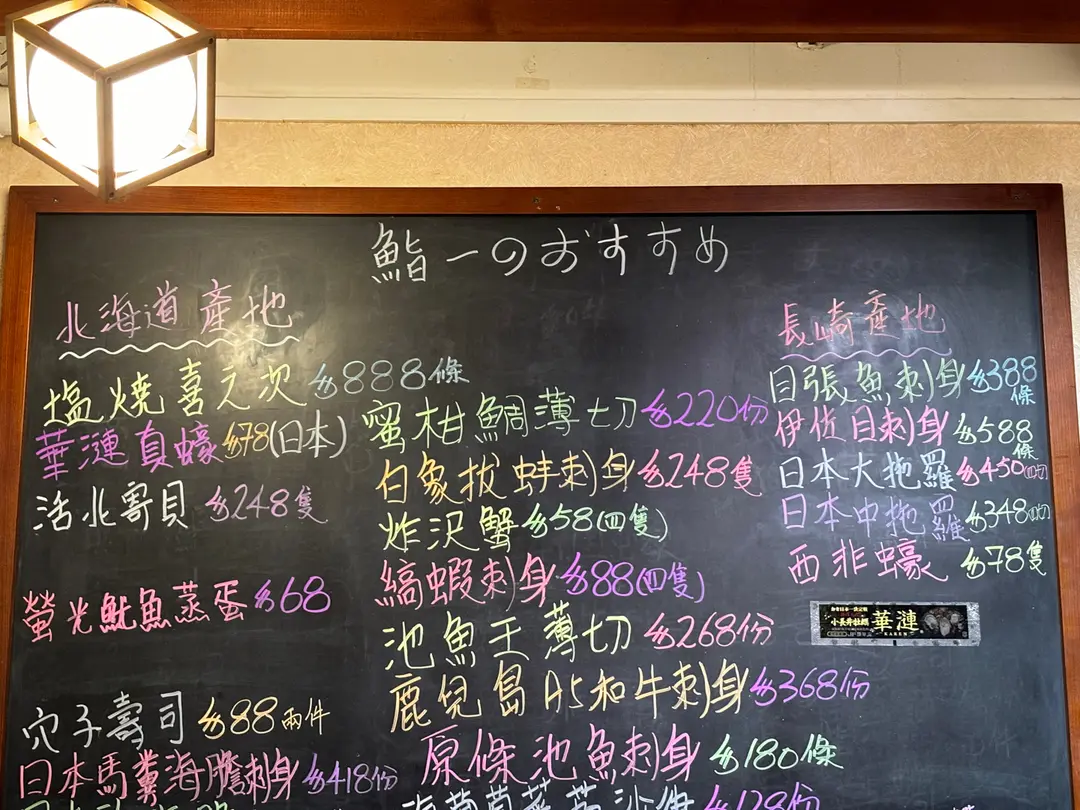 鮨一のおすすめ
北海道產地
塩燒喜之次 $888條
華漣真蠔 $78(日本)
活北寄貝 $248隻
螢光魷魚蒸蛋 $68
穴子壽司 $88兩件
日本馬糞海膽刺身 $418份
蜜柑鯛薄切 $220份
白象拔蚌刺身 $248隻
炸沢蟹 $58(四隻)
縞蝦刺身 $88(四隻)
池魚王薄切 $268份
鹿兒島A5和牛刺身 $368份
原條池魚刺身 $180條
$128份
長崎產地
目張魚刺身 $388條
伊佐目刺身 $588條
日本大拖羅 $450(四切)
日本中拖羅 $348(四切)
西非蠔 $78隻
小長井牡蠣 華漣
KAREN